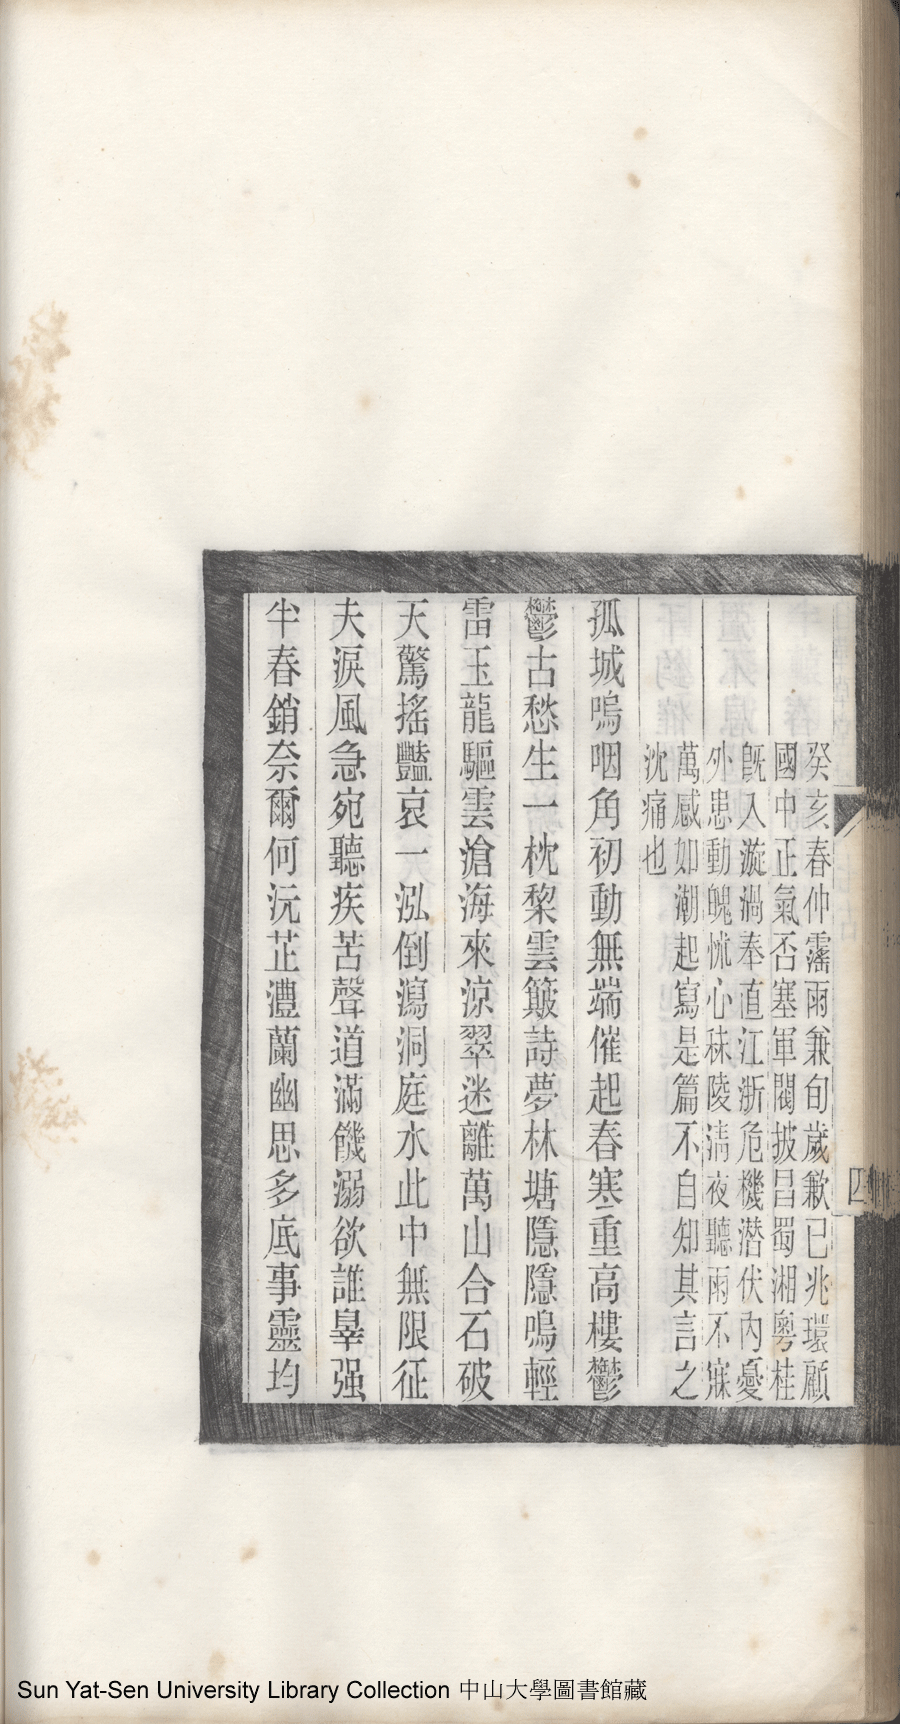 癸亥春仲霪雨兼旬歲歉已兆環顧
國中正氣否塞軍閥披昌蜀湘粵桂
旣入漩渦奉直江浙危機潛伏內憂
外患動魄怵心秣陵淸夜聽雨不寐
萬感如潮起寫是篇不自知其言之
沈痛也
孤城嗚咽角初動無端催起春寒重高樓鬱
鬱古愁生一枕棃雲簸詩夢林塘隱隱鳴輕
雷玉龍驅雲滄海來涼翠迷離萬山合石破
天驚搖豔哀一泓倒瀉洞庭水此中無限征
夫淚風急宛聽疾苦聲道滿饑溺欲誰辠强
半春銷奈爾何沅芷澧蘭幽思多底事靈均
四
Sun Yat-Sen University Library Collection 中山大學圖書館藏